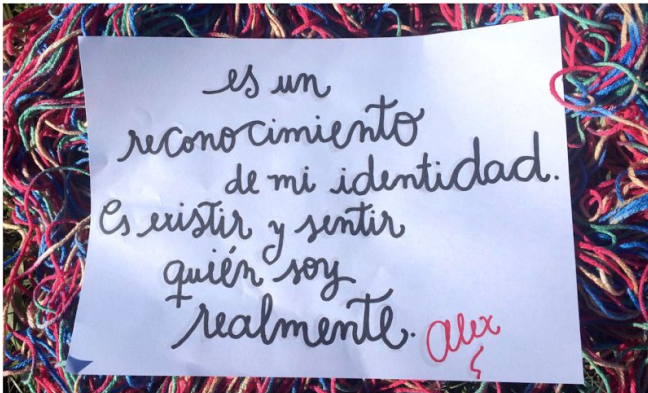 es un
reconocimiento
de mi identidad.
Es existir y sentir
quién soy
realmente.
Alex